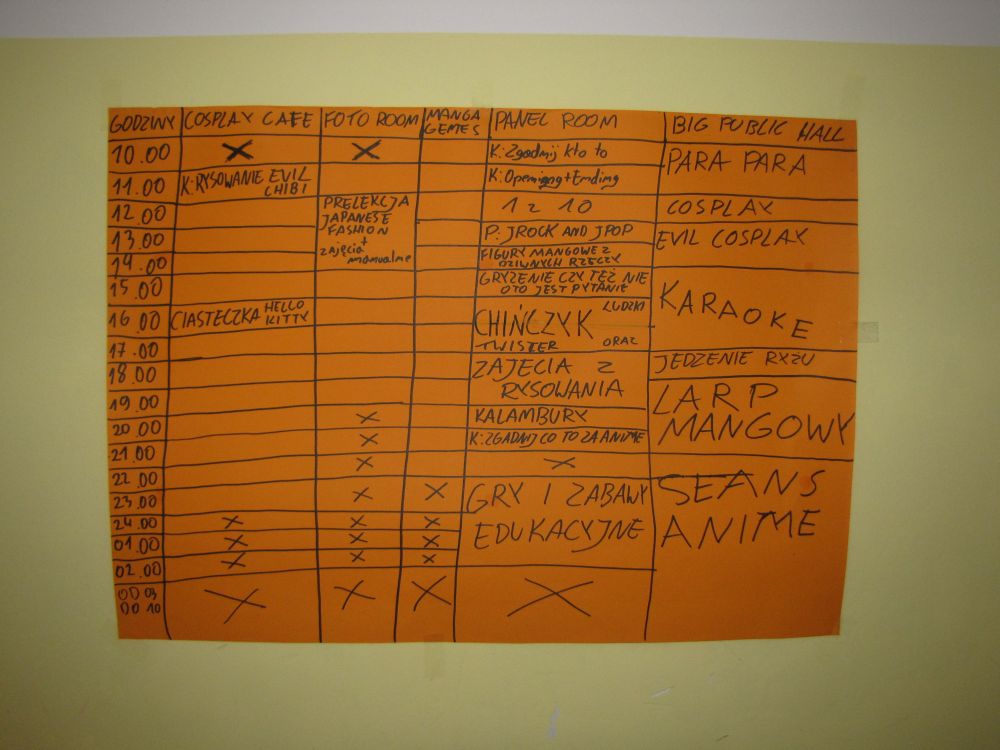 GODZINY COSPLAY CAFE FOTO ROOM MANGA GEMES PANEL ROOM BIG PUBLIC HALL
10.00 X X K: Zgadnij kto to PARA PARA
11.00 K: RYSOWANIE EVIL CHIBI K: Opening + Ending
12.00 PRELEKCJA JAPANESE FASHION + zajęcia manualne 1 z 10 COSPLAY
13.00 P: JROCK AND JPOP EVIL COSPLAY
14.00 FIGURY MANGOWE Z DZIWNYCH RZECZY
15.00 GRYZIENIE CZY TEŻ NIE OTO JEST PYTANIE KARAOKE
16.00 CIASTECZKA HELLO KITTY CHIŃCZYK LUDZKI ORAZ TWISTER
17.00 JEDZENIE RYŻU
18.00 ZAJECIA Z RYSOWANIA LARP MANGOWY
19.00
20.00 X KALAMBURY
X K: ZGADNIJ CO TO ZA ANIME
21.00 X X SEANS ANIME
22.00
23.00 X X GRY I ZABAWY EDUKACYJNE
24.00 X X X
01.00 X X X
02.00 X X X
OD 03 DO 10 X X X X